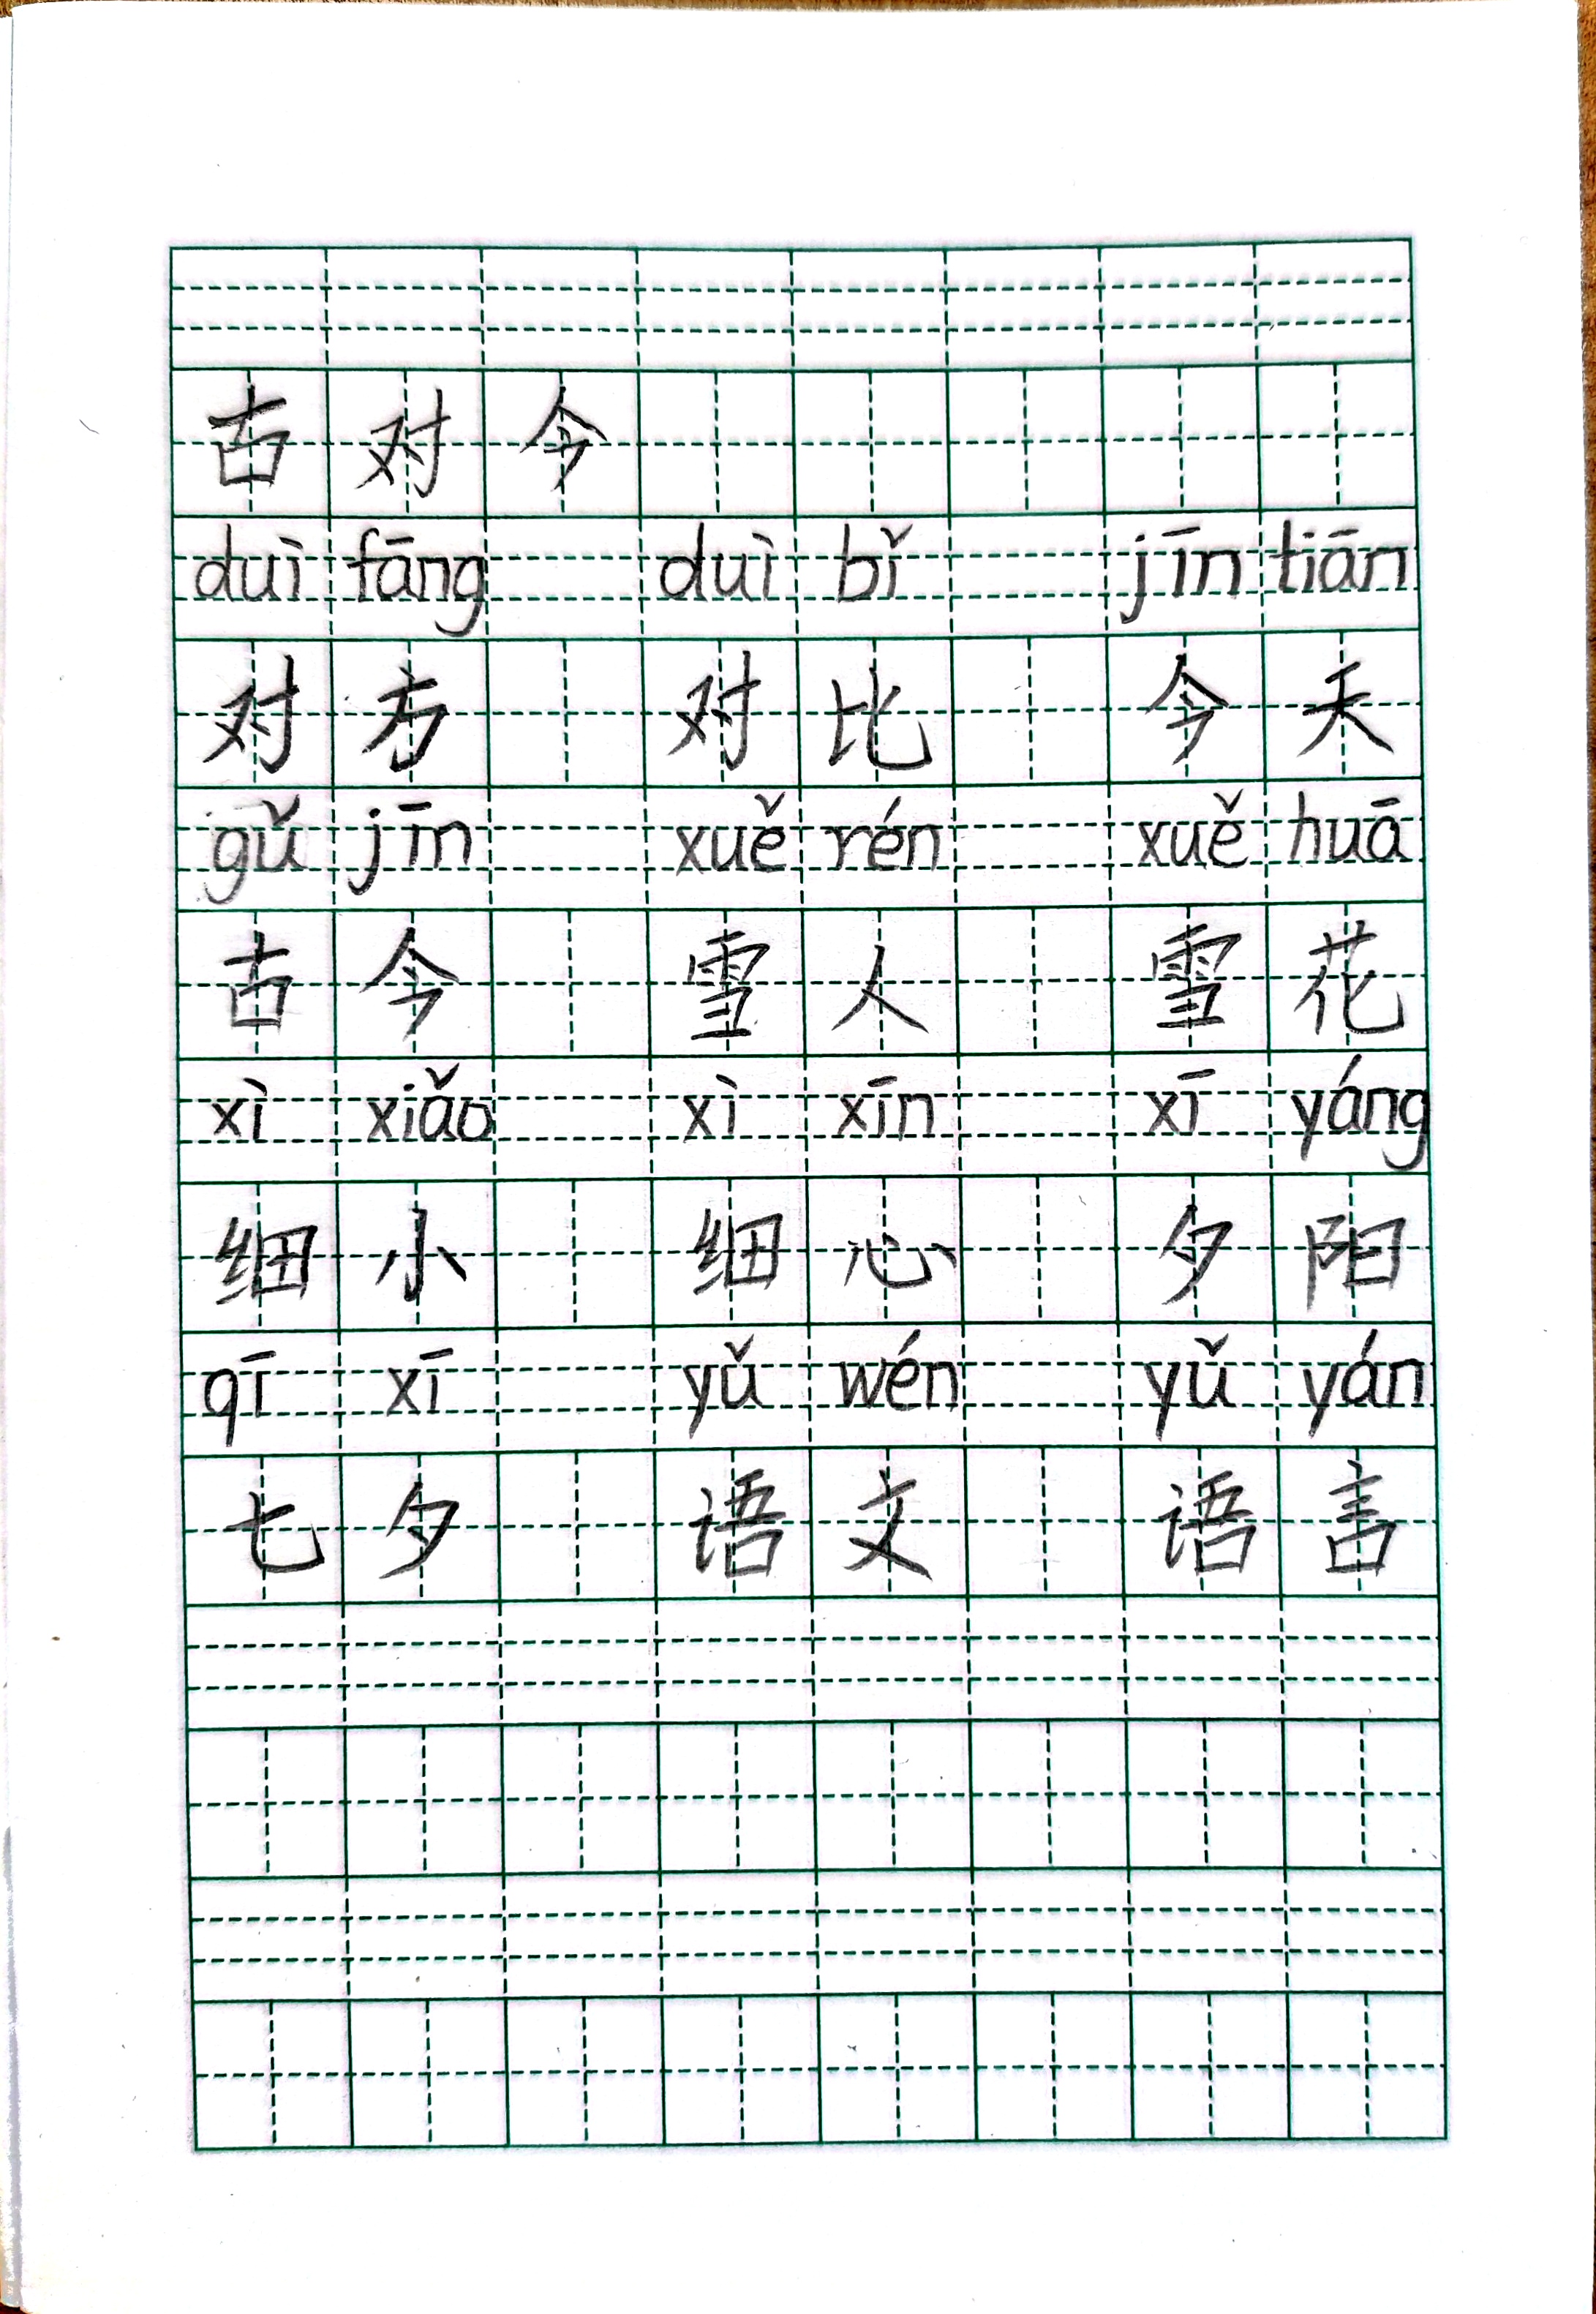 古对今
duì fāng duì bǐ jīn tiān
对方 对比 今天
gǔ jīn xuě rén xuě huā
古今 雪人 雪花
xì xiǎo xì xīn xī yáng
细小 细心 夕阳
qī xī yǔ wén yǔ yán
七夕 语文 语言